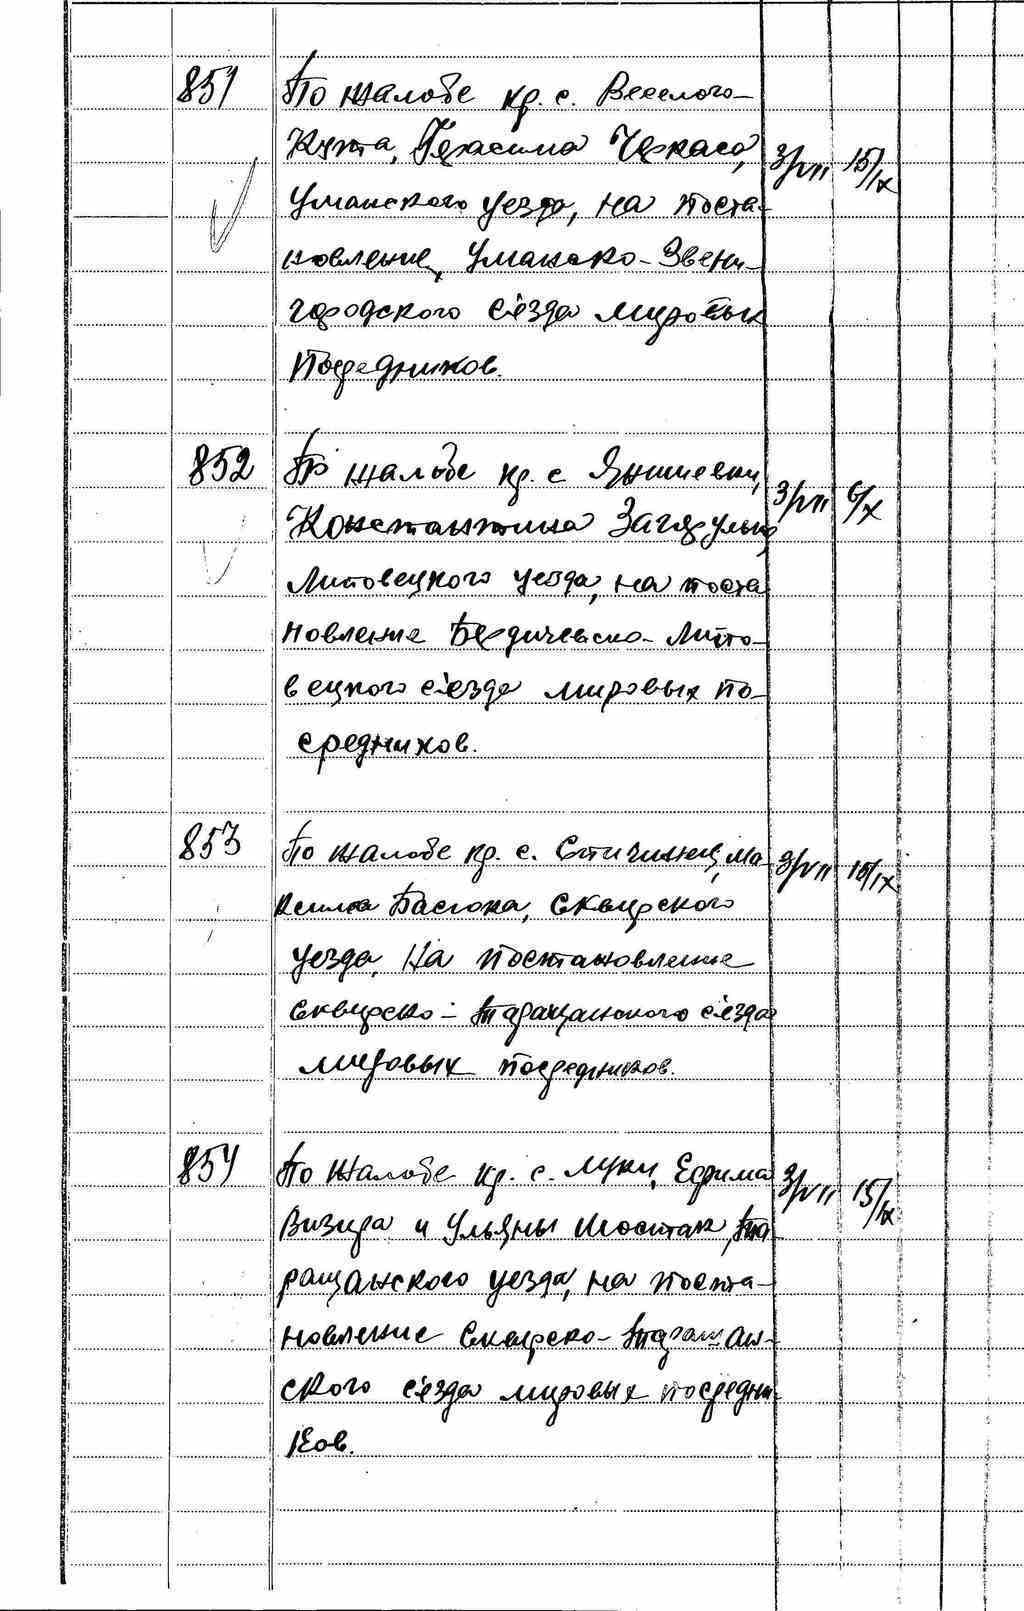 851 По жалобе кр. с. Веселого-
Кута, Герасима Черкаса, 3/VII 15/IX
Уманского уезда, на поста-
новление Уманско-Звени-
городского с'езда мировых
Посредников.
852 По жалобе кр. с Янишевки, 3/VII 6/X
Константина Загядулько,
Липовецкого уезда, на поста
новление Бердичевско-Липо-
вецкого с'езда мировых по-
средников.
853 По жалобе кр. с. Стичинец, Ма- 3/VII 15/IX
ксима Басюка, Сквирского
уезда, на постановление
Сквирско-Таращанского с'езда
мировых посредников.
854 По жалобе кр. с. Луки, Ефима 3/VII 15/IX
Визира и Ульяны Шостак, Та
ращанского уезда, на поста-
новление Сквирско-Таращан-
ского с'езда мировых посредни-
ков.